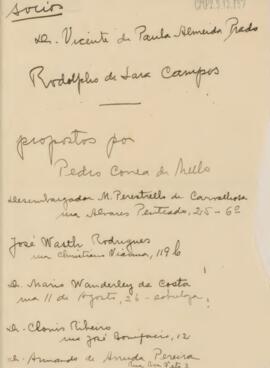 socios
Dr. Vicente de Paula Almeida Prado
Rodolpho de Lara Campos
propostos por
Pedro Correa de Mello
Desembargador M. Perestrello de Carvalhosa
rua Alvares Penteado, 25-6º
José Wasth Rodrigues
rua Christiano Vianna, 119b
D. Mario Wanderley da Costa
rua 11 de Agosto, 26 -
Dr. Clovis Ribeiro
rua José Bonifacio, 12
Dr. Armando de Arruda Pereira
Rua